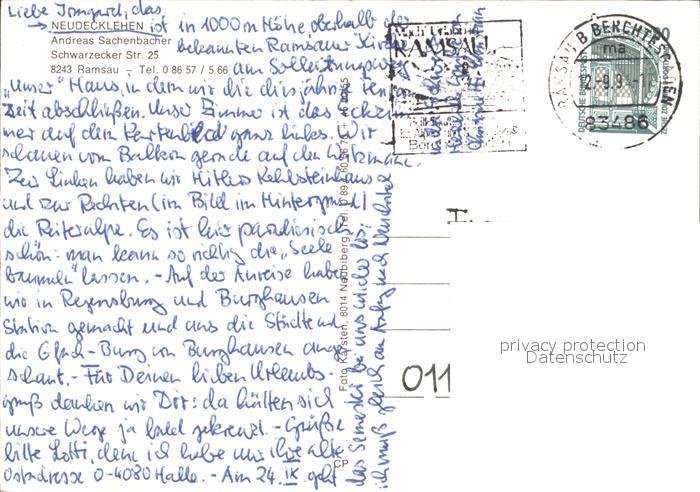 Liebe Irmgard, das
→ NEUDECKLEHEN ist in 1000 m Höhe, oberhalb der
Andreas Sachenbacher bekannten Ramsauer Kirche
Schwarzecker Str. 25 am Solleitungsweg
8243 Ramsau – Tel. 0 86 57 / 5 66
„Unser" Haus, in dem wir die diesjährige
Zeit abschließen. Unser Zimmer ist das Eckzim-
mer auf dem Kartenbild ganz links. Wir
schauen vom Balkon gerade auf den Watzmann.
Zur Linken haben wir Hitlers Kehlsteinhaus
und zur Rechten (im Bild im Hintergrund)
die Reiteralpe. Es ist hier paradiesisch
schön: man kann so richtig die „Seele
baumeln" lassen. – Auf der Anreise haben
wir in Regensburg und Burghausen
Station gemacht und uns die Städte und
die Burg von Burghausen ange-
schaut. – Für Deinen lieben Urlaubs-
gruß danken wir Dir: da hätten sich
unsere Wege ja bald gekreuzt. – Grüße
bitte Lotti, denn ich habe nur ihre alte
Ostadresse O-4030 Halle. – Am 24. IX. geht
das Semester bei uns wieder los,
ich muß gleich am Anfang nach
Foto Karsten, 8014 Neubiberg, Tel. 0 89
CP
RAMSAU
RAMSAU B BERCHTESGADEN
ma
-9.9.
83486
DEUTSCHE BUNDESPOST
011
privacy protection
Datenschutz